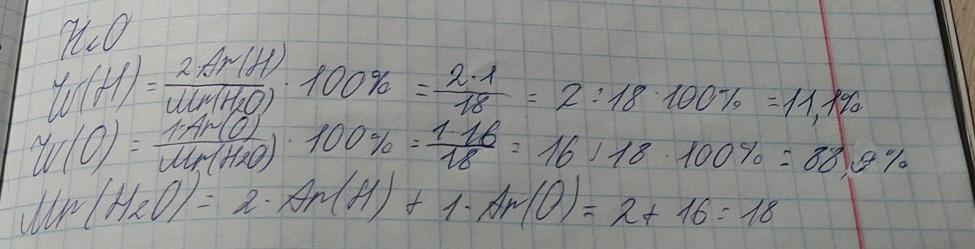 H₂O
W(H) = 2·Ar(H)/Mr(H₂O) · 100% = 2·1/18 = 2 : 18 · 100% = 11,1%
W(O) = 1·Ar(O)/Mr(H₂O) · 100% = 1·16/18 = 16 : 18 · 100% = 88,9%
Mr(H₂O) = 2· Ar(H) + 1· Ar(O) = 2+ 16 = 18